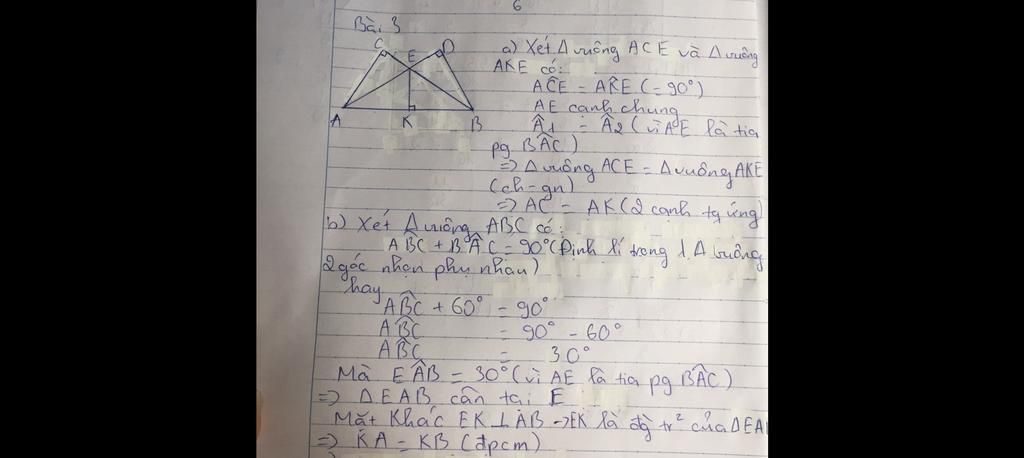 6
Bài 3
C E D
A K B
a) Xét Δ vuông ACE và Δ vuông
AKE có:
AĈE = AK̂E (= 90°)
AE cạnh chung
Â1 = Â2 (vì AE là tia
pg BÂC)
=> Δ vuông ACE = Δ vuông AKE
(ch-gn)
=> AC = AK (2 cạnh tg ứng)
b) Xét Δ vuông ABC có:
AB̂C + BÂC = 90° (Định lí trong 1 Δ vuông
2 góc nhọn phụ nhau)
hay
AB̂C + 60° = 90°
AB̂C = 90° - 60°
AB̂C = 30°
Mà EÂB = 30° (vì AE là tia pg BÂC)
=> ΔEAB cân tại E
Mặt Khác EK ⊥ AB → EK là đg tr² của ΔEA
=> KA = KB (đpcm)